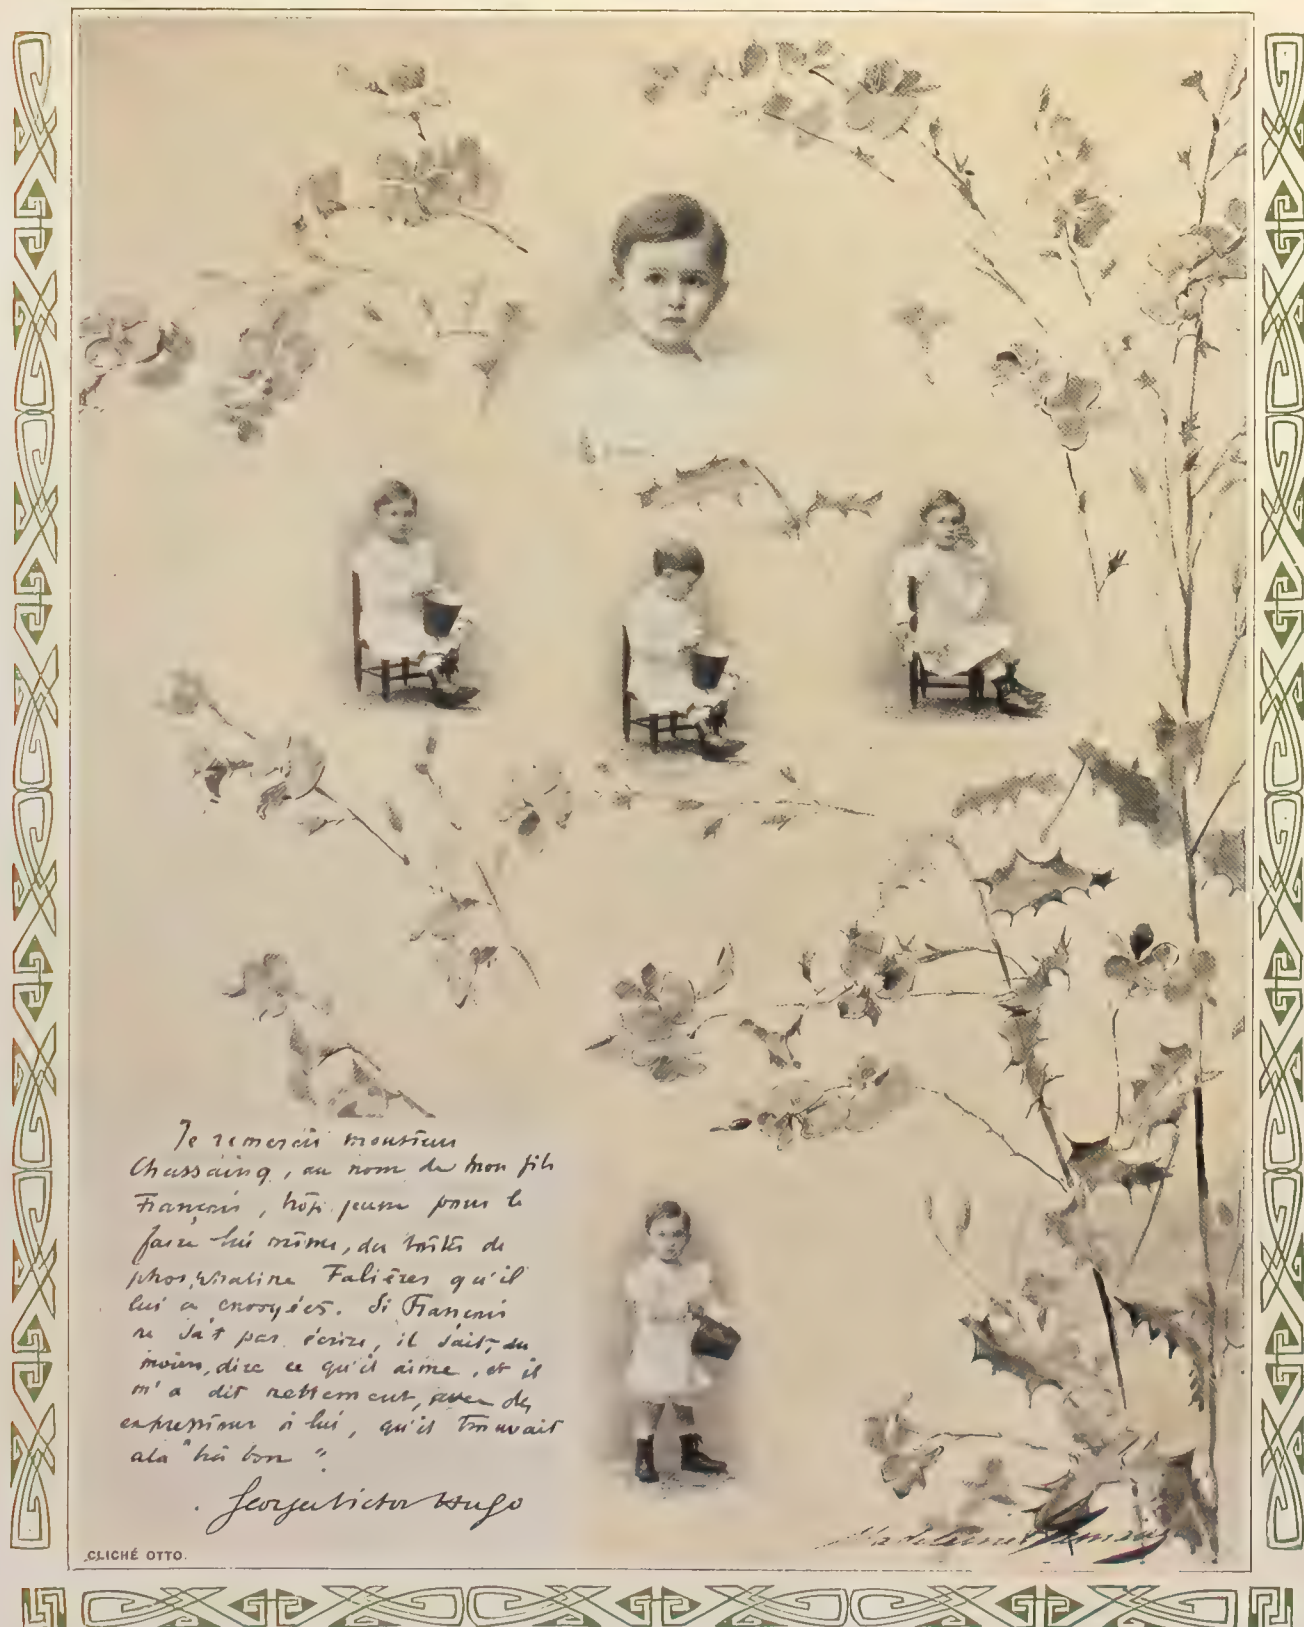 Je remercie monsieur
Chassaing, au nom de mon fils
François, trop jeune pour le
faire lui même, des boîtes de
phosphatine Falières qu'il
lui a envoyées. Si François
ne sait pas écrire, il sait, du
moins, dire ce qu'il aime, et il
m'a dit nettement, avec des
expressions à lui, qu'il trouvait
cela "très bon".
Georges Victor Hugo
Madeleine Lemaire
CLICHÉ OTTO.